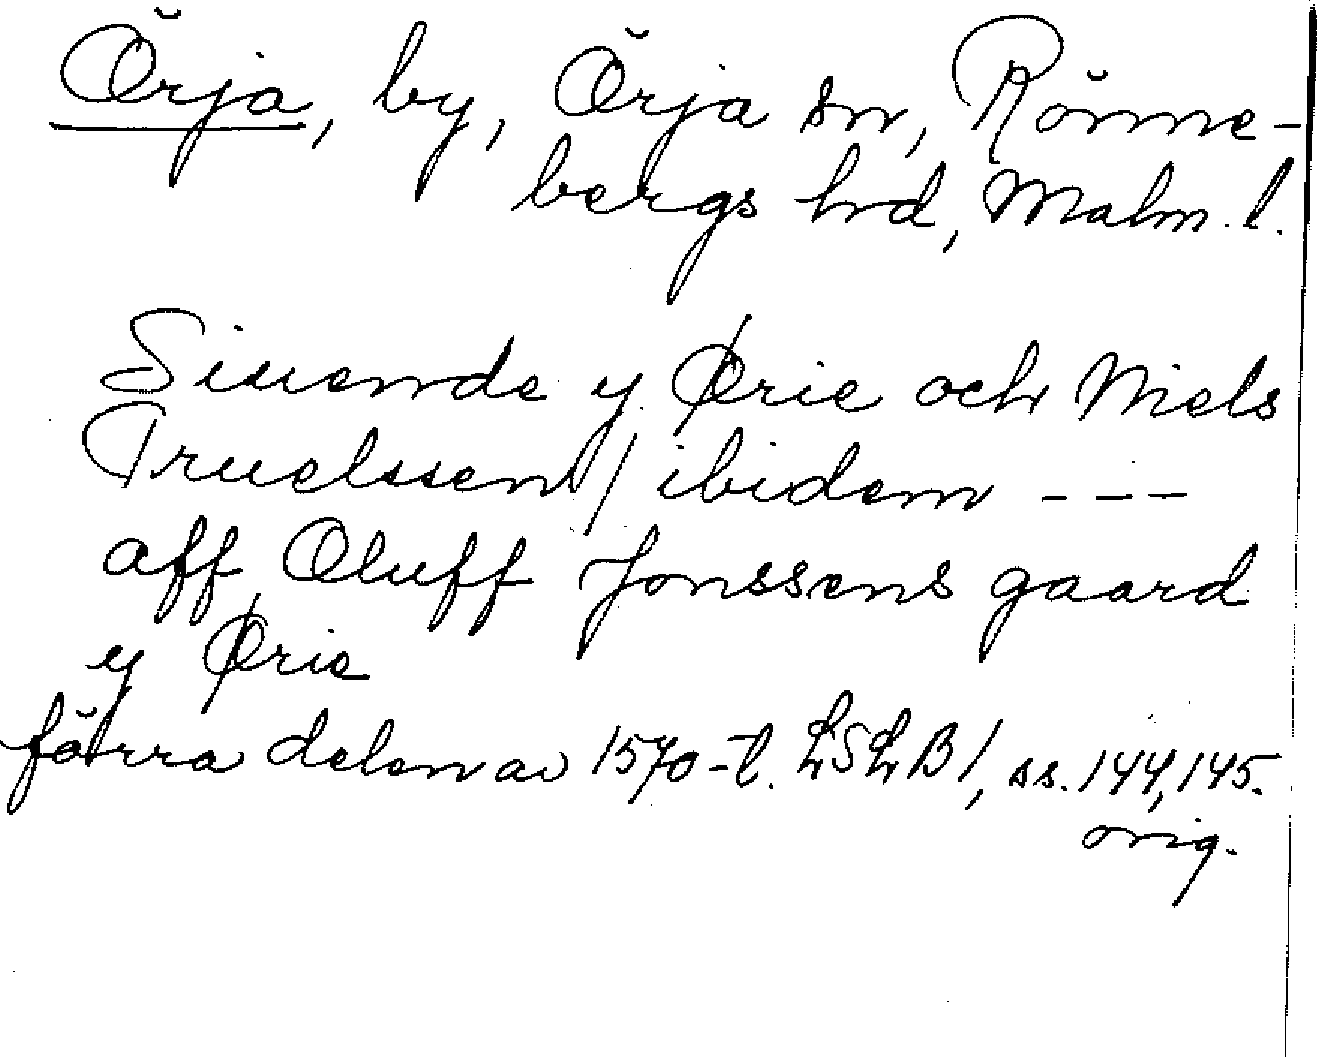 Örja, by, Örja sn, Rönne-
bergs hrd, Malm. l.
Siuende y Ørie och Niels
Truelssenn / ibidem ---
aff Oluff Jonssens gaard
y Ørie
förra delen av 1570-t. LSLB 1, ss. 144, 145.
orig.